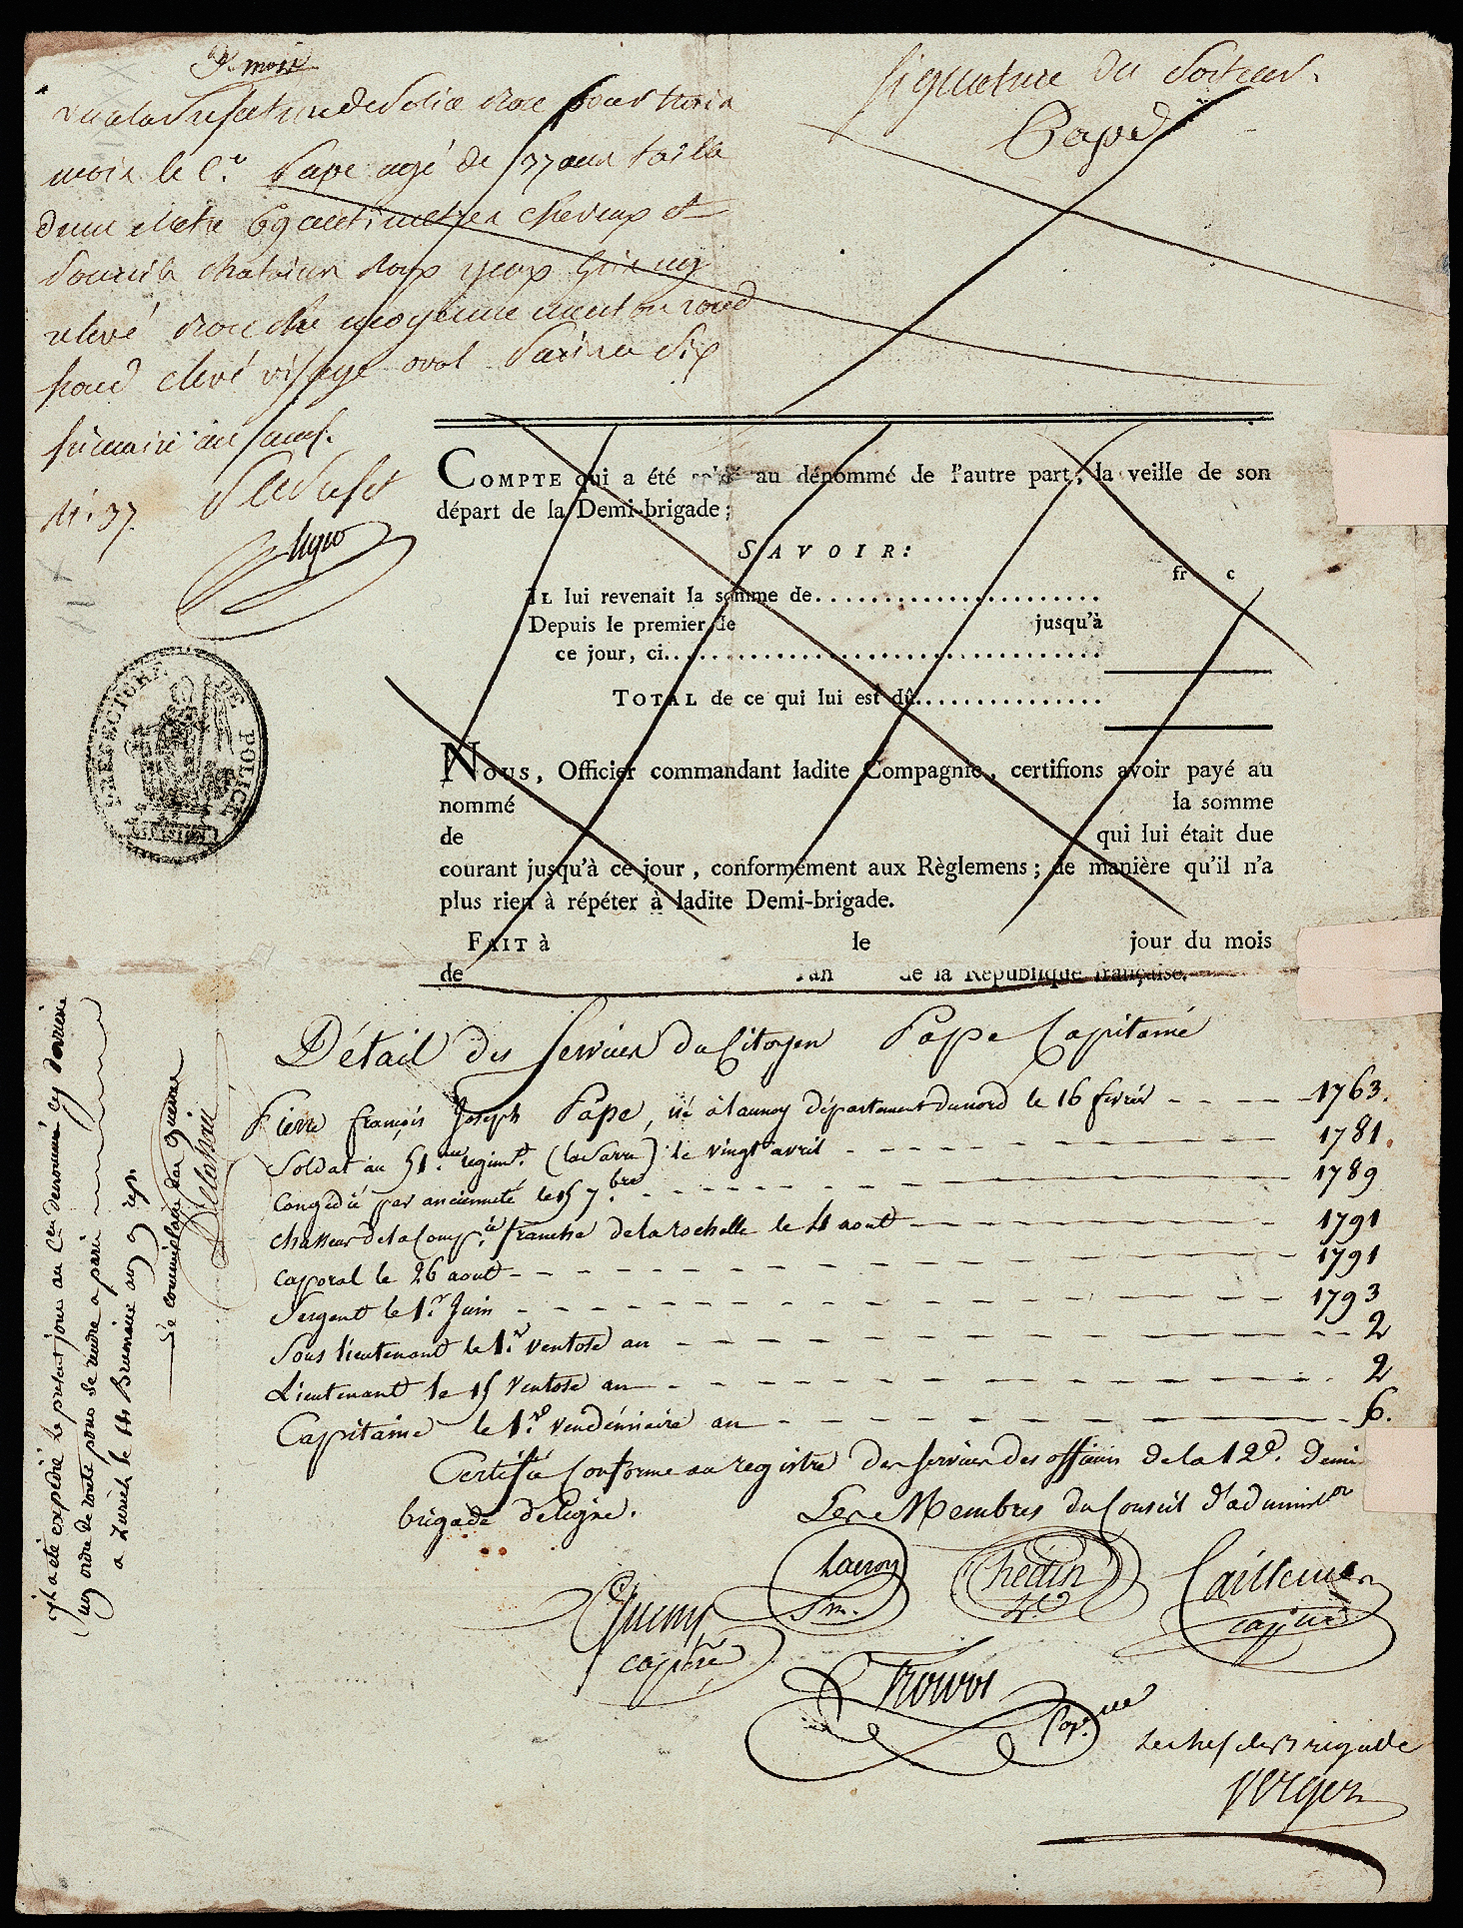 mois
vu a la Prefecture de Police bon pour trois
mois le C.en Pape agé de 37 ans taille
d'un Metre 69 centimetres cheveux et
sourcils chatains yeux gris nez
relevé bouche moyenne menton rond
front elevé visage oval Paris le six
frimaire an neuf.
N.° 37. Le Prefet
Signature du Porteur.
Pape
COMPTE qui a été soldé au dénommé de l'autre part, la veille de son
départ de la Demi-brigade;
SAVOIR:
fr c
IL lui revenait la somme de......................
Depuis le premier de jusqu'à
ce jour, ci......................
TOTAL de ce qui lui est dû................
PREFECTURE DE POLICE
DIVISION
NOUS, Officier commandant ladite Compagnie, certifions avoir payé au
nommé la somme
de qui lui était due
courant jusqu'à ce jour, conformément aux Règlemens; de manière qu'il n'a
plus rien à répéter à ladite Demi-brigade.
FAIT à le jour du mois
de l'an de la République française.
Détail des Services du Citoyen Pape Capitaine
Pierre françois Joseph Pape, né à launoy département du nord le 16 fevrier - - - - 1763.
Soldat au 51.me regimt. (la Sarre) le vingt avril - - - - 1781.
Congédié par ancienneté le 15 7.bre - - - - 1789
chasseur de la Comp.ie franche de la rochelle le 4 aout - - - - 1791
caporal le 26 aout - - - - 1791
Sergent le 1.er Juin - - - - 1793
Sous lieutenant le 1.er ventose an - - - - 2
Lieutenant le 15 Ventose an - - - - 2
Capitaine le 1.er vendémiaire an - - - - 6.
Certifié Conforme au registre des services des officiers de la 12.e Demi
brigade de ligne.
Les Membres du Conseil d'adminis.on
Lacroix
Chedin
Cailleue
capne
Trouvos
Cap.ne
Le chef de Brigade
Verger
Il a été expédié le present jour au C.en denommé cy derriere
un ordre de route pour se rendre a paris
a Zurich le 14 Brumaire an 9 rep.
Le commissaire des guerres